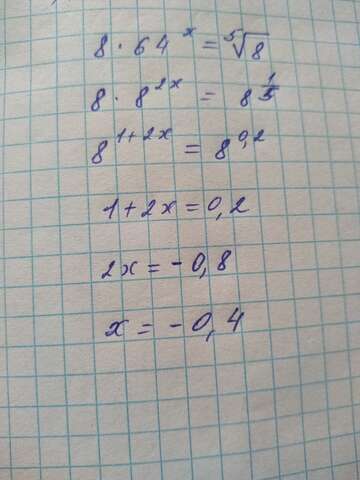 8 · 64^x = ⁵√8
8 · 8^{2x} = 8^{1/5}
8^{1+2x} = 8^{0,2}
1+2x=0,2
2x = -0,8
x = -0,4